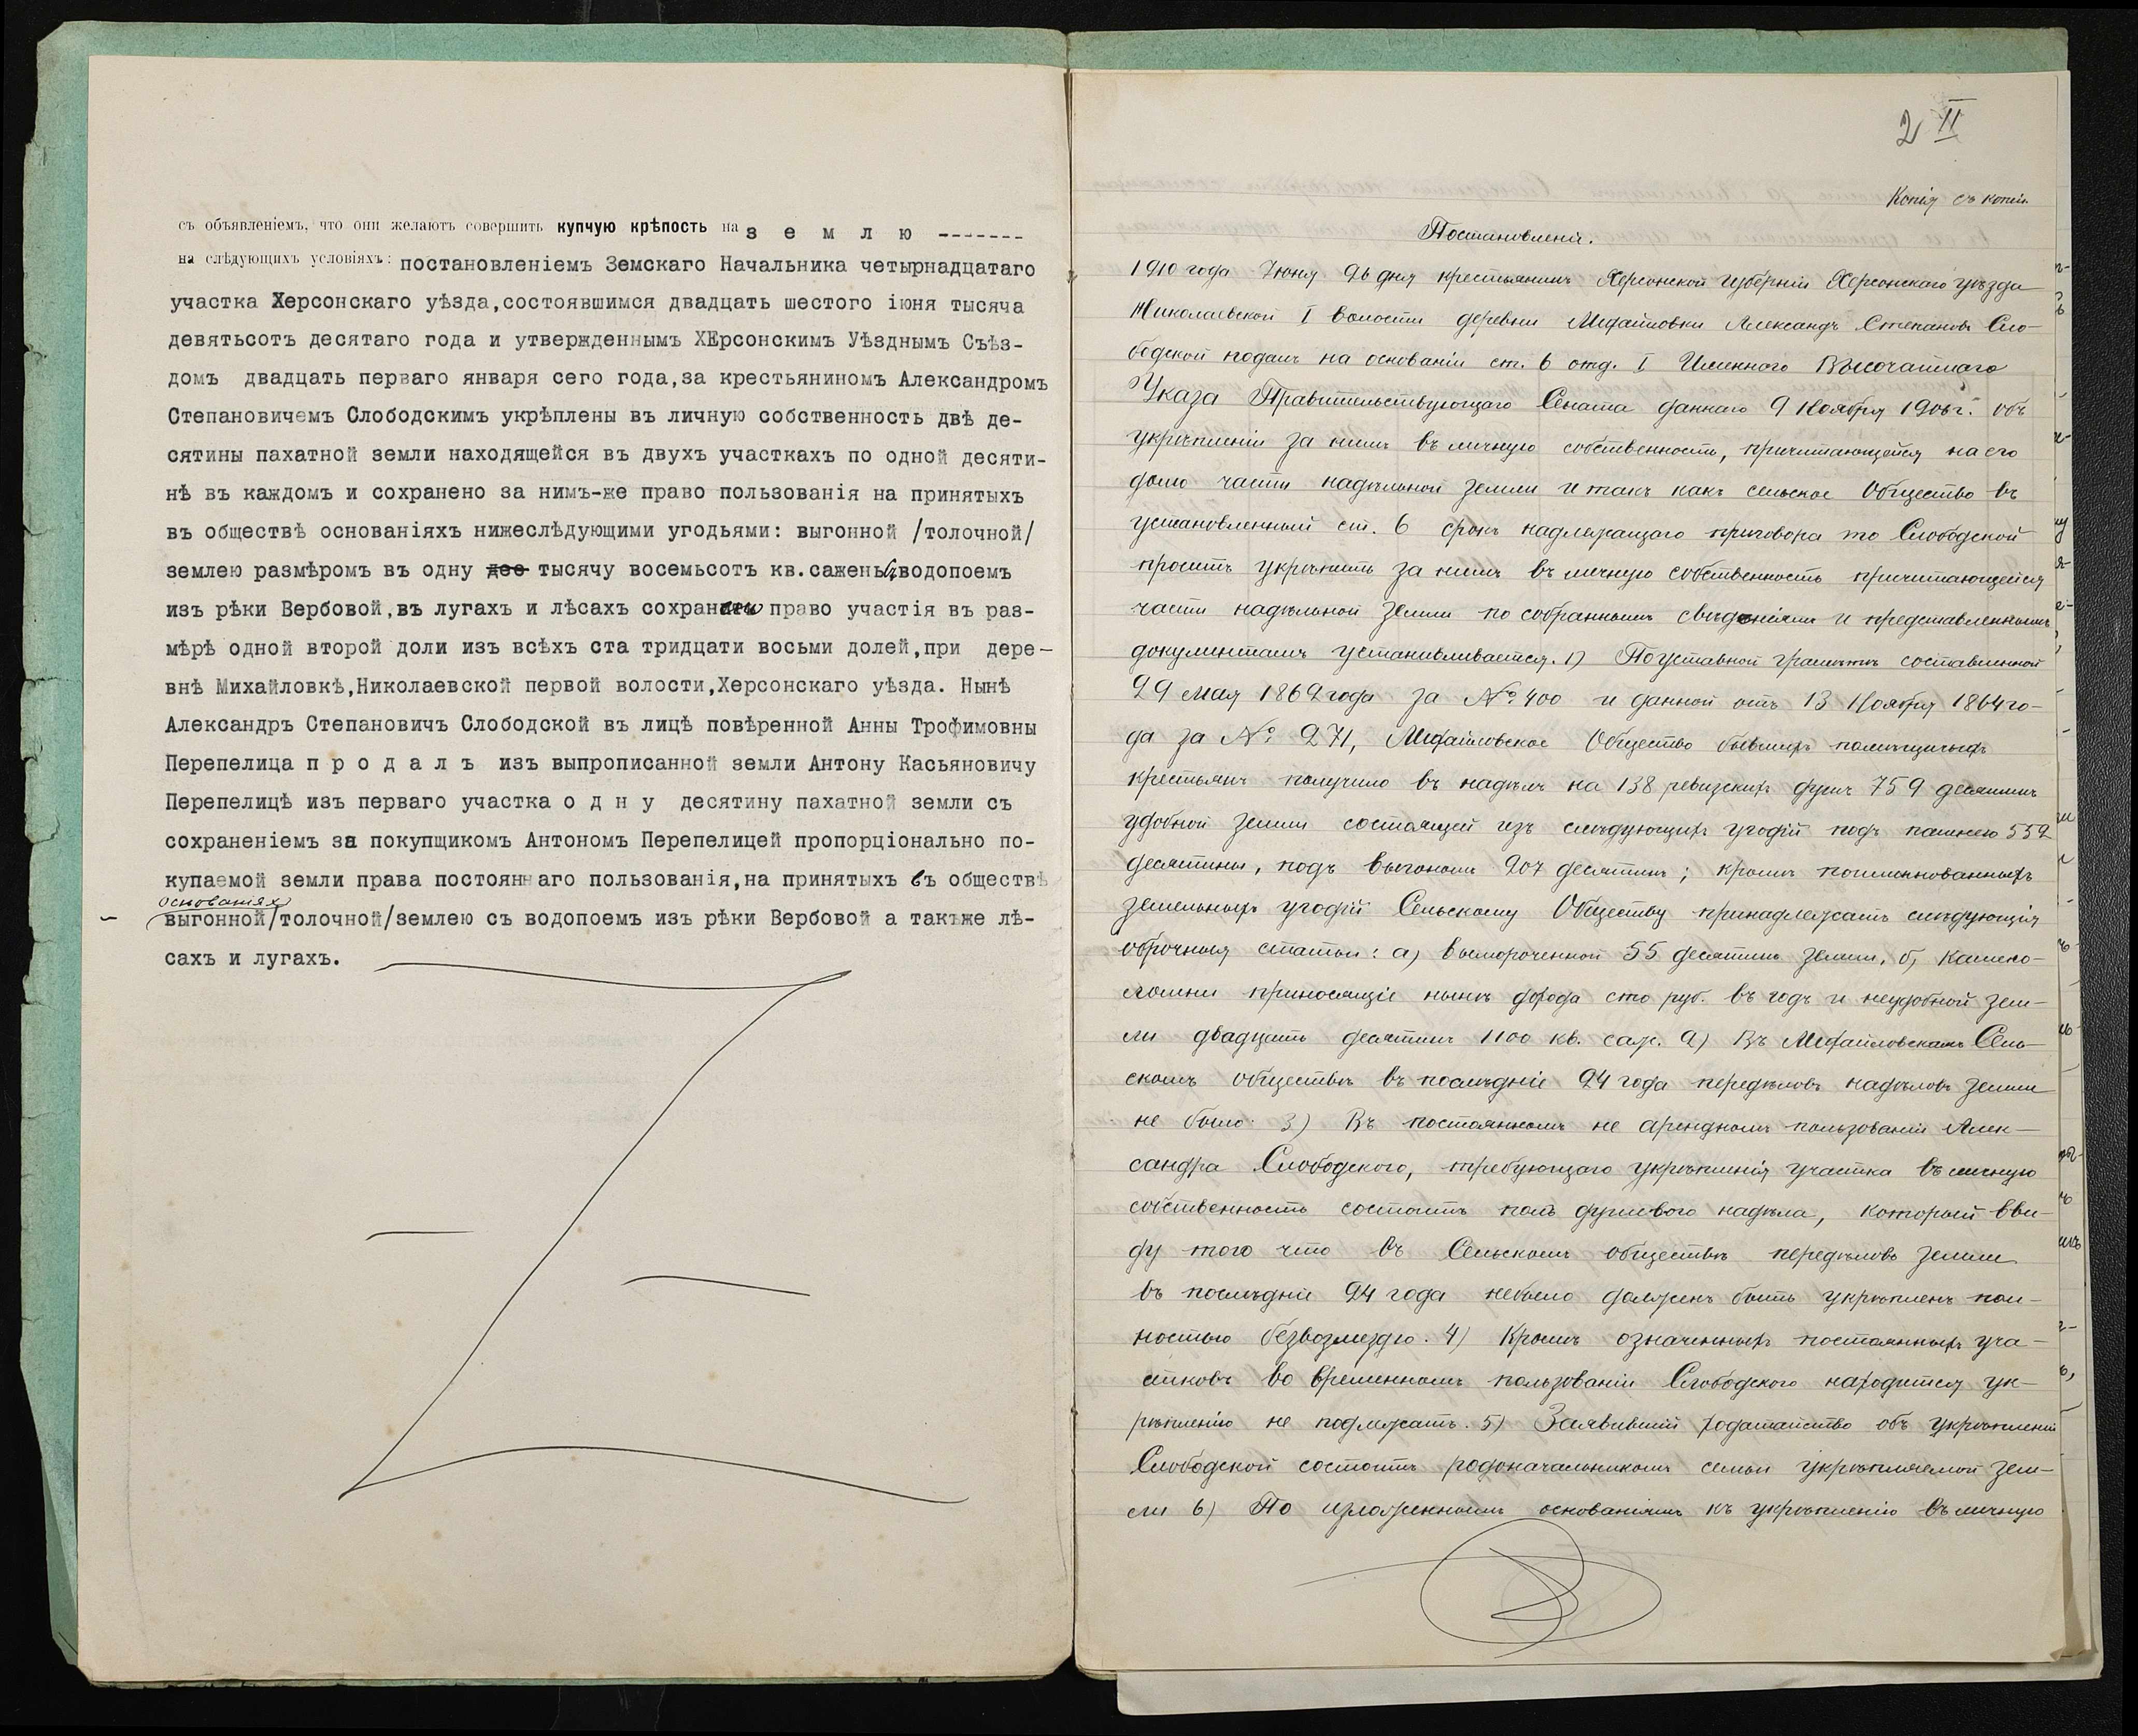 съ объявленіемъ, что они желаютъ совершить купчую крѣпость на з е м л ю -------
на слѣдующихъ условіяхъ: постановленіемъ Земскаго Начальника четырнадцатаго
участка Херсонскаго уѣзда,состоявшимся двадцать шестого іюня тысяча
девятьсотъ десятаго года и утвержденнымъ ХЕрсонскимъ Уѣзднымъ Съѣз-
домъ двадцать перваго января сего года,за крестьяниномъ Александромъ
Степановичемъ Слободскимъ укрѣплены въ личную собственность двѣ де-
сятины пахатной земли находящейся въ двухъ участкахъ по одной десяти-
нѣ въ каждомъ и сохранено за нимъ-же право пользованія на принятыхъ
въ обществѣ основаніяхъ нижеслѣдующими угодьями: выгонной /толочной/
землею размѣромъ въ одну дес тысячу восемьсотъ кв.сажень съ водопоемъ
изъ рѣки Вербовой,въ лугахъ и лѣсахъ сохранено право участія въ раз-
мѣрѣ одной второй доли изъ всѣхъ ста тридцати восьми долей,при дере-
внѣ Михайловкѣ,Николаевской первой волости,Херсонскаго уѣзда. Нынѣ
Александръ Степановичъ Слободской въ лицѣ повѣренной Анны Трофимовны
Перепелица п р о д а л ъ изъ выпрописанной земли Антону Касьяновичу
Перепелицѣ изъ перваго участка о д н у десятину пахатной земли съ
сохраненіемъ за покупщикомъ Антономъ Перепелицей пропорціонально по-
купаемой земли права постояннаго пользованія,на принятыхъ въ обществѣ
основаніяхъ
выгонной/толочной/землею съ водопоемъ изъ рѣки Вербовой а такъже лѣ-
сахъ и лугахъ.
2 II
Копія съ копіи
Постановленіе.
1910 года Іюня 26 дня крестьянинъ Херсонской губерніи Херсонскаго уѣзда
Николаевской I волости деревни Михайловки Александръ Степановъ Сло-
бодской подалъ на основаніи ст. 6 отд. I Именного Высочайшаго
Указа Правительствующаго Сената даннаго 9 Ноября 1906 г. объ
укрѣпленіи за нимъ въ личную собственность, причитающейся на его
долю части надѣльной земли и такъ какъ сельское Общество въ
установленный ст. 6 срокъ надлежащаго приговора то Слободской
проситъ укрѣпить за нимъ въ личную собственность причитающейся
части надѣльной земли по собраннымъ свѣдѣніямъ и представленнымъ
документамъ устанивливается. 1) По уставной грамотѣ составленной
29 Мая 1862 года за № 400 и данной отъ 13 Ноября 1864 го-
да за № 271, Михайловское Общество бывшихъ помѣщичьихъ
крестьянъ получило въ надѣлъ на 138 ревизскихъ душъ 759 десятинъ
удобной земли состоящей изъ слѣдующихъ угодій подъ пашнею 552
десятины, подъ выгономъ 207 десятинъ; кромѣ поименнованныхъ
земельныхъ угодій Сельскому Обществу принадлежатъ слѣдующія
оброчныя статьи: а) вымороченной 55 десятинъ земли, б) камено-
ломни приносящіе нынѣ дохода сто руб. въ годъ и неудобной зем-
ли двадцать десятинъ 1100 кв. саж. 2) Въ Михайловскомъ Сель-
скомъ обществѣ въ послѣдніе 24 года передѣловъ надѣловъ земли
не было. 3) Въ постоянномъ не арендномъ пользованіи Алек-
сандра Слободского, требующаго укрѣпленія участка въ личную
собственность состоитъ полъ душевого надѣла, который вви-
ду того что въ Сельскомъ обществѣ передѣловъ земли
въ послѣдніе 24 года небыло долженъ быть укрѣпленъ пол-
ностью безвозмездно. 4) Кромѣ означенныхъ постоянныхъ уча-
стковъ во временномъ пользованіи Слободского находится ук-
рѣпленію не подлежатъ. 5) Заявившій ходатайство объ укрѣпленіи
Слободской состоитъ родоначальникомъ семьи укрѣпляемой зем-
ли 6) По изложеннымъ основаніямъ къ укрѣпленію въ личную